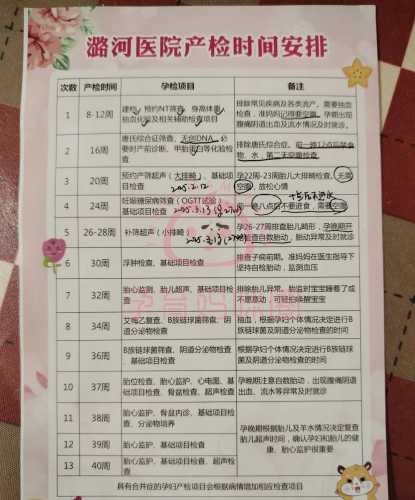 潞河医院产检时间安排
次数 产检时间 孕检项目 备注
1 8-12周 建档、预约NT筛查、身高体重、抽血化验及相关辅助检查项目 排除常见疾病及各类流产，需要抽血检查，准妈妈记得要空腹。孕期出现腹痛阴道出血及流水情况及时就诊。
2 16周 唐氏综合征筛查、无创DNA、必要时产前诊断、甲胎蛋白等化验检查 排除唐氏综合征。前一晚12点后禁食物、水，第二天空腹检查。
3 20周 预约产筛超声（大排畸）、基础项目检查 孕22周-23周胎儿大排畸检查，无需空腹，放松心情
2025.2.12
4 24周 妊娠糖尿病筛查（OGTT试验）、基础项目检查 前一晚八点后不要进食，需要空腹
2025.3.13
5 26-28周 补筛超声（小排畸） 孕26-27周排查胎儿畸形，孕晚期开始检查自数胎动，胎动异常及时就诊
2025.3.13
6 30周 浮肿检查、基础项目检查 排查子痫前期。准妈妈在医生指导下坚持自检胎动，监测血压
7 32周 胎心监测、胎儿超声、基础项目检查 排除胎儿异常。胎监时宝宝睡着了或不愿意动，可轻拍唤醒宝宝
8 34周 艾梅乙复查、B族链球菌筛查、阴道分泌物检查 抽血，根据孕妇个体情况决定进行B族链球菌及阴道分泌物检查的时间
9 36周 B族链球菌筛查、阴道分泌物检查、基础项目检查 根据孕妇个体情况决定进行B族链球菌及阴道分泌物检查的时间
10 37周 胎位检查、胎心监护、心电图、基础项目检查、骨盆检查、超声检查 孕晚期注意自数胎动，出现腹痛阴道出血、流水等异常及时就诊
11 38周 胎心监护、骨盆内诊、基础项目检查、分泌物培养 孕晚期根据胎儿及羊水情况决定复查胎儿超声时间，确认孕妇和胎儿的健康、胎心监护很重要
12 39周 胎心监护、基础项目检查
13 40周 胎心监护、基础项目检查、超声检查
具有合并症的孕妇产检项目会根据病情增加相应检查项目